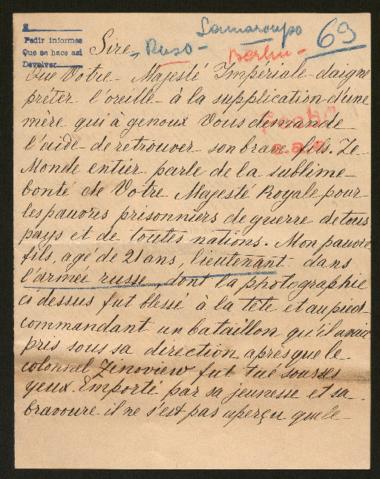 2
Pedir informes
Que se hace asi
Devolver
Ruso
Berlin
69
Sire,
Que Votre Majesté Impériale daigne
prêter l'oreille à la supplication d'une
mère qui à genoux Vous demande
l'aide de retrouver son brave fils. Le
Monde entier parle de la sublime
bonté de Votre Majesté Royale pour
les pauvres prisonniers de guerre de tous
pays et de toutes nations. Mon pauvre
fils, agé de 21 ans, lieutenant dans
l'armée russe, dont la photographie
ci dessus fut blessé à la tête et au pied
commandant un bataillon qu'il avait
pris sous sa direction après que le
colonnel Zinoview fut tué sous ses
yeux. Emporté par sa jeunesse et sa
bravoure il ne s'est pas aperçu que le